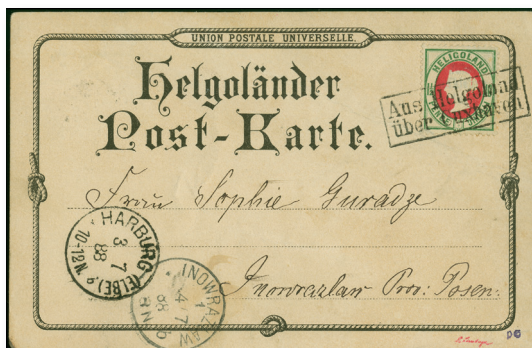 UNION POSTALE UNIVERSELLE.
Helgoländer
Post-Karte.
HELIGOLAND
Aus Helgoland
über Cuxhaven
Frau Sophie Guradze
Inowrazlaw Prov: Posen.
HARBURG (ELBE) 2
3 7
88
10-12 N
INOWRAZLAW
1
4 7
88
8-9 N